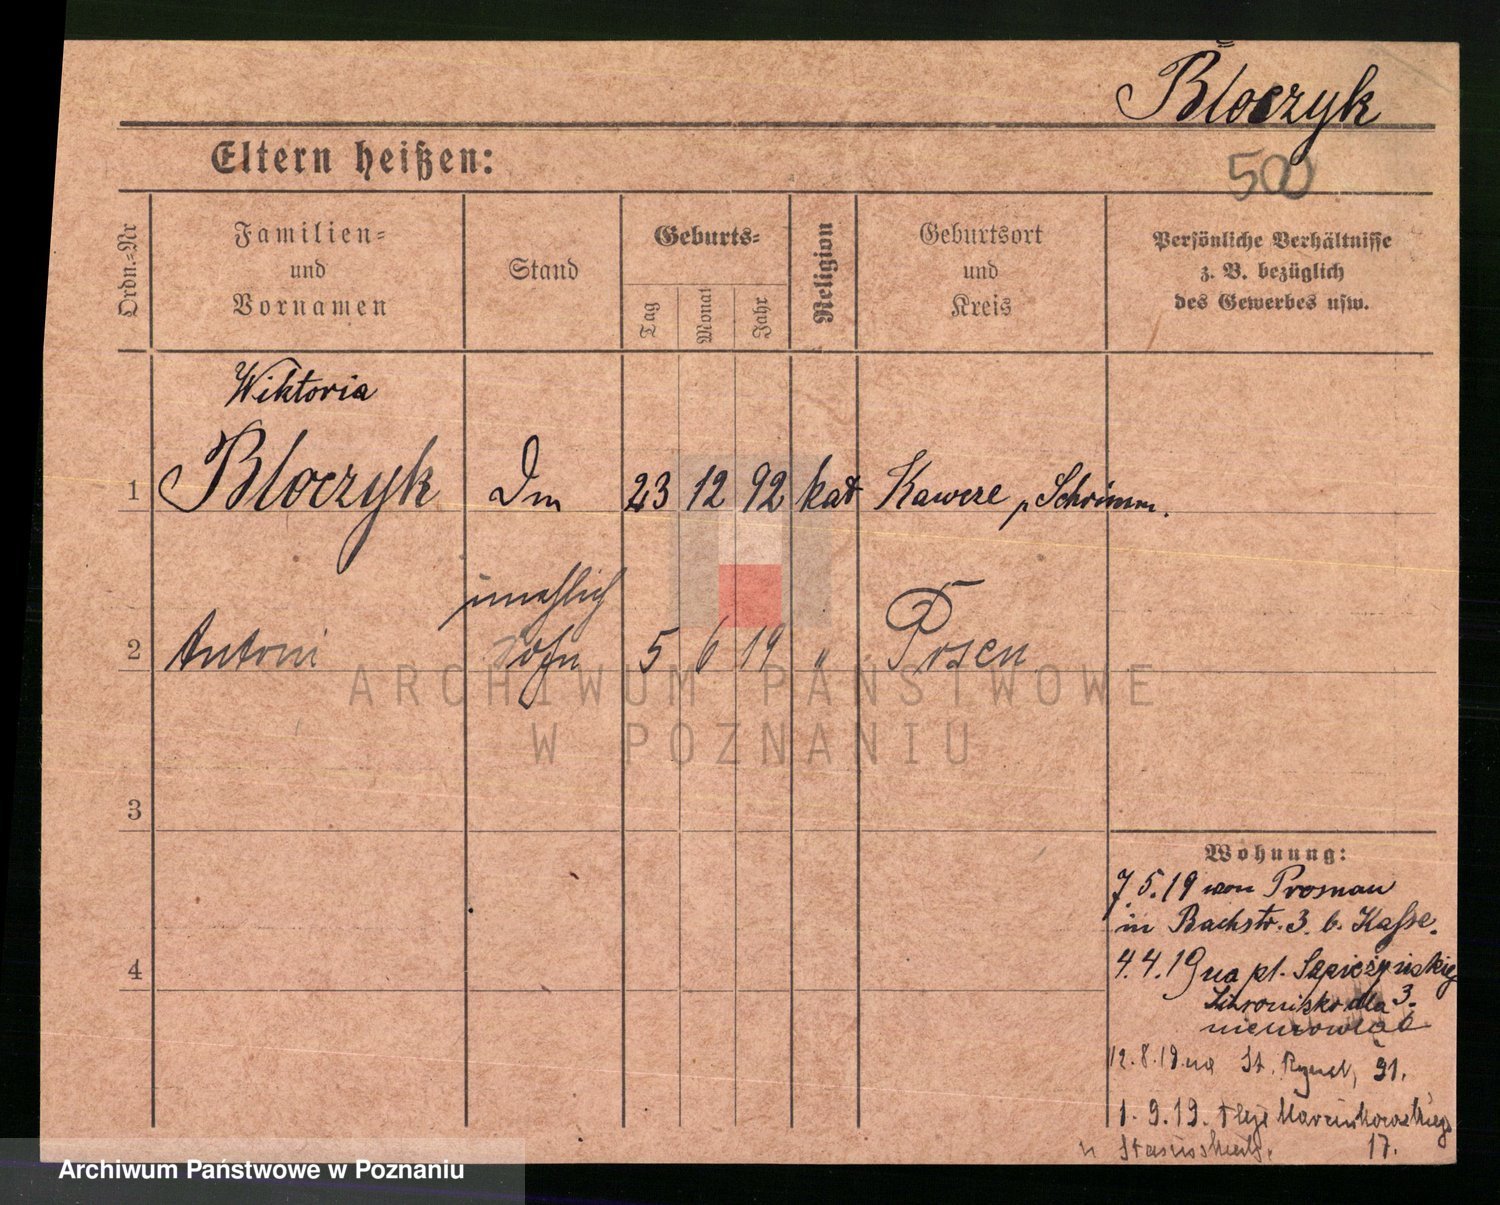 Bloczyk
Eltern heißen:
500
Ordn.-Nr
Familien-
und
Vornamen
Stand
Geburts-
Tag
Monat
Jahr
Religion
Geburtsort
und
Kreis
Persönliche Verhältnisse
z. B. bezüglich
des Gewerbes usw.
Wiktoria
1 Bloczyk Dm 23 12 92 kat Kawcze, Schrimm.
unehlich
2 Antoni Sohn 5 6 19 " Posen
3
4
Wohnung:
7.5.19 von Prosnau
in Bachstr. 3. b. Kasse.
4.4.19 na pl.
Schronisko dla 3.
niemowląt
12.8.19 na St. Rynek, 91.
1.9.19. Aleje Marcinkowskiego
17.
ARCHIWUM PAŃSTWOWE
W POZNANIU
Archiwum Państwowe w Poznaniu